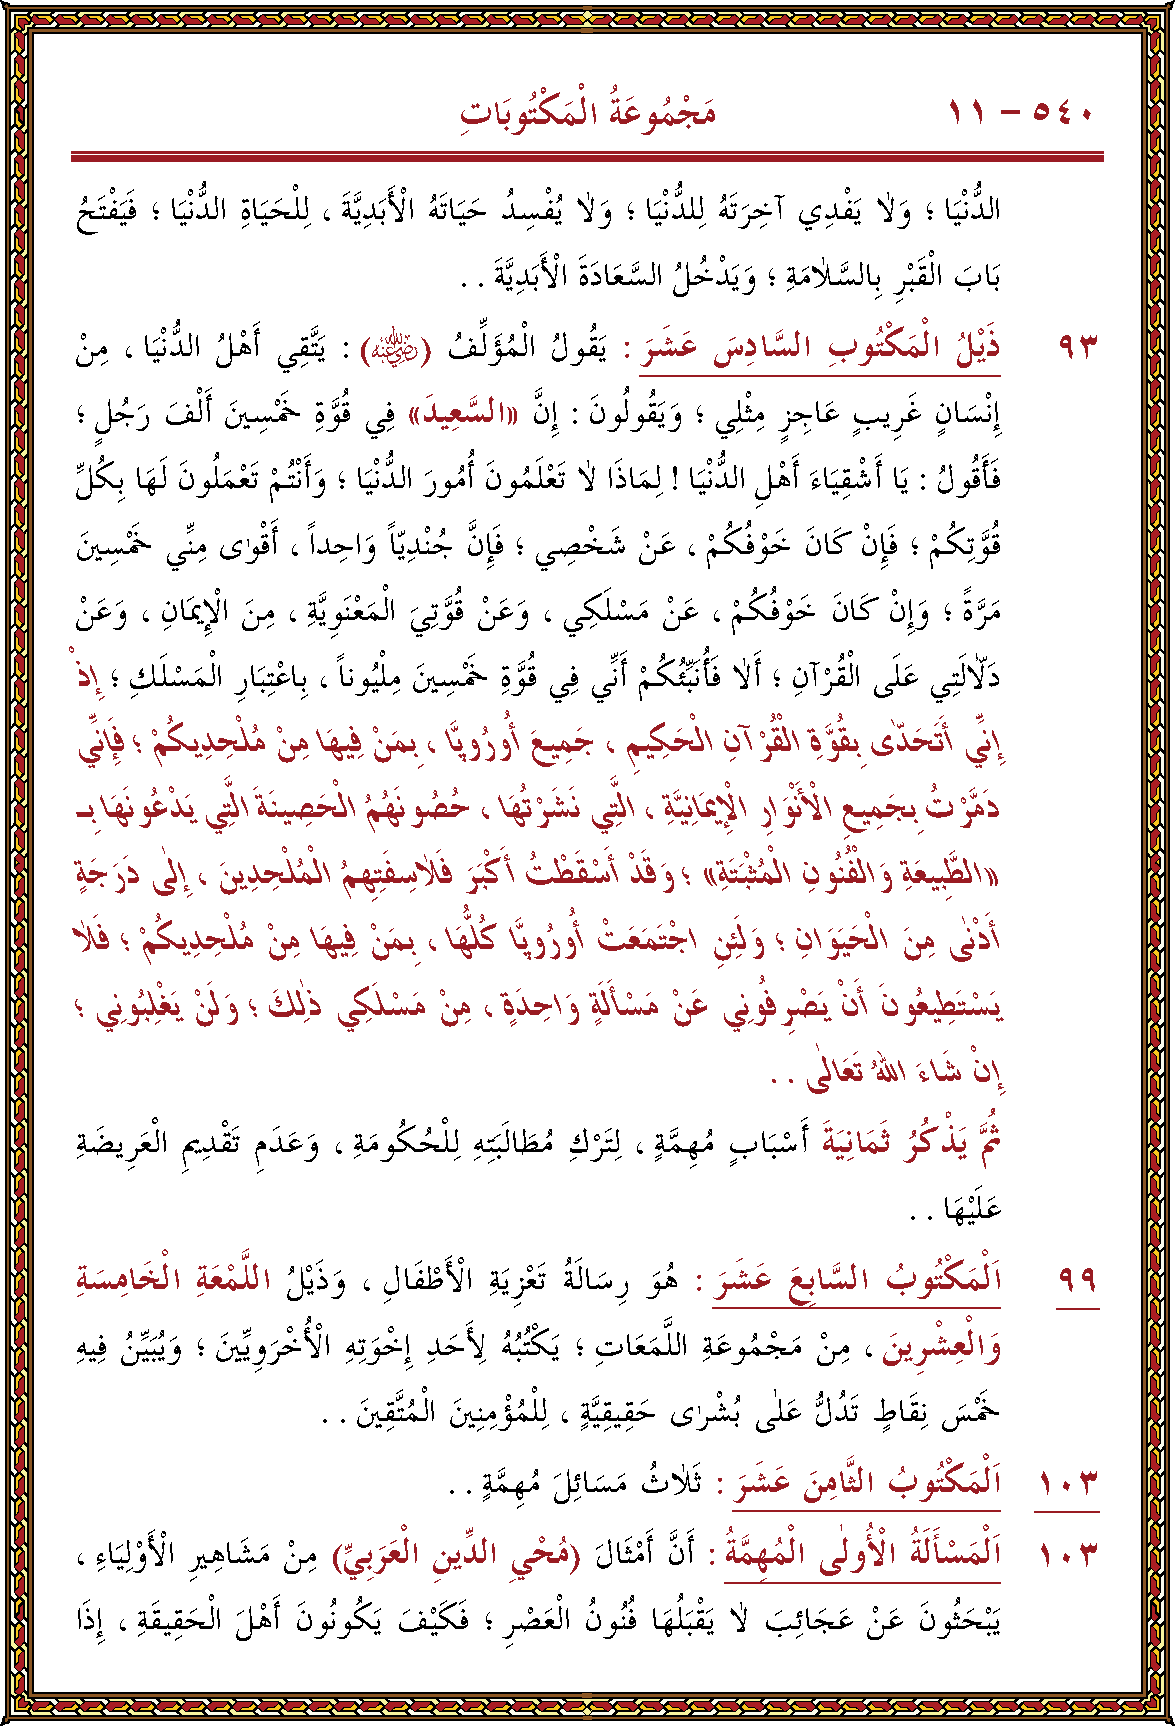 ٥٤٠ - ١١ مَجْمُوعَةُ الْمَكْتُوبَاتِ
الدُّنْيَا ؛ وَلاٰ يَفْدِي آخِرَتَهُ لِلدُّنْيَا ؛ وَلاٰ يُفْسِدُ حَيَاتَهُ الْأَبَدِيَّةَ ، لِلْحَيَاةِ الدُّنْيَا ؛ فَيَفْتَحُ
بَابَ الْقَبْرِ بِالسَّلاٰمَةِ ؛ وَيَدْخُلُ السَّعَادَةَ الْأَبَدِيَّةَ . .
٩٣ ذَيْلُ الْمَكْتُوبِ السَّادِسَ عَشَرَ : يَقُولُ الْمُؤَلِّفُ (رضي الله عنه) : يَتَّقِي أَهْلُ الدُّنْيَا ، مِنْ
إِنْسَانٍ غَرِيبٍ عَاجِزٍ مِثْلِي ؛ وَيَقُولُونَ : إِنَّ «السَّعِيدَ» فِي قُوَّةِ خَمْسِينَ أَلْفَ رَجُلٍ ؛
فَأَقُولُ : يَا أَشْقِيَاءَ أَهْلِ الدُّنْيَا ! لِمَاذَا لاٰ تَعْلَمُونَ أُمُورَ الدُّنْيَا ؛ وَأَنْتُمْ تَعْمَلُونَ لَهَا بِكُلِّ
قُوَّتِكُمْ ؛ فَإِنْ كَانَ خَوْفُكُمْ ، عَنْ شَخْصِي ؛ فَإِنَّ جُنْدِيّاً وَاحِداً ، أَقْوٰى مِنِّي خَمْسِينَ
مَرَّةً ؛ وَإِنْ كَانَ خَوْفُكُمْ ، عَنْ مَسْلَكِي ، وَعَنْ قُوَّتِيَ الْمَعْنَوِيَّةِ ، مِنَ الْإِيمَانِ ، وَعَنْ
دَلاّٰلَتِي عَلَى الْقُرْآنِ ؛ أَلاٰ فَأُنَبِّئُكُمْ أَنِّي فِي قُوَّةِ خَمْسِينَ مِلْيُوناً ، بِاعْتِبَارِ الْمَسْلَكِ ؛ إِذْ
إِنِّي أَتَحَدّٰى بِقُوَّةِ الْقُرْآنِ الْحَكِيمِ ، جَمِيعَ أُورُوپَّا ، بِمَنْ فِيهَا مِنْ مُلْحِدِيكُمْ ؛ فَإِنِّي
دَمَّرْتُ بِجَمِيعِ الْأَنْوَارِ الْإِيمَانِيَّةِ ، الَّتِي نَشَرْتُهَا ، حُصُونَهُمُ الْحَصِينَةَ الَّتِي يَدْعُونَهَا بِـ
«الطَّبِيعَةِ وَالْفُنُونِ الْمُثْبَتَةِ» ؛ وَقَدْ أَسْقَطْتُ أَكْبَرَ فَلاٰسِفَتِهِمُ الْمُلْحِدِينَ ، إِلٰى دَرَجَةٍ
أَدْنٰى مِنَ الْحَيَوَانِ ؛ وَلَئِنِ اجْتَمَعَتْ أُورُوپَّا كُلُّهَا ، بِمَنْ فِيهَا مِنْ مُلْحِدِيكُمْ ؛ فَلاٰ
يَسْتَطِيعُونَ أَنْ يَصْرِفُونِي عَنْ مَسْأَلَةٍ وَاحِدَةٍ ، مِنْ مَسْلَكِي ذٰلِكَ ؛ وَلَنْ يَغْلِبُونِي ؛
إِنْ شَاءَ اللّٰهُ تَعَالٰى . .
ثُمَّ يَذْكُرُ ثَمَانِيَةَ أَسْبَابٍ مُهِمَّةٍ ، لِتَرْكِ مُطَالَبَتِهِ لِلْحُكُومَةِ ، وَعَدَمِ تَقْدِيمِ الْعَرِيضَةِ
عَلَيْهَا . .
٩٩ اَلْمَكْتُوبُ السَّابِعَ عَشَرَ : هُوَ رِسَالَةُ تَعْزِيَةِ الْأَطْفَالِ ، وَذَيْلُ اللَّمْعَةِ الْخَامِسَةِ
وَالْعِشْرِينَ ، مِنْ مَجْمُوعَةِ اللَّمَعَاتِ ؛ يَكْتُبُهُ لِأَحَدِ إِخْوَتِهِ الْأُخْرَوِيِّينَ ؛ وَيُبَيِّنُ فِيهِ
خَمْسَ نِقَاطٍ تَدُلُّ عَلٰى بُشْرٰى حَقِيقِيَّةٍ ، لِلْمُؤْمِنِينَ الْمُتَّقِينَ . .
١٠٣ اَلْمَكْتُوبُ الثَّامِنَ عَشَرَ : ثَلاٰثُ مَسَائِلَ مُهِمَّةٍ . .
١٠٣ اَلْمَسْأَلَةُ الْأُولٰى الْمُهِمَّةُ : أَنَّ أَمْثَالَ (مُحْيِ الدِّينِ الْعَرَبِيِّ) مِنْ مَشَاهِيرِ الْأَوْلِيَاءِ ،
يَبْحَثُونَ عَنْ عَجَائِبَ لاٰ يَقْبَلُهَا فُنُونُ الْعَصْرِ ؛ فَكَيْفَ يَكُونُونَ أَهْلَ الْحَقِيقَةِ ، إِذَا